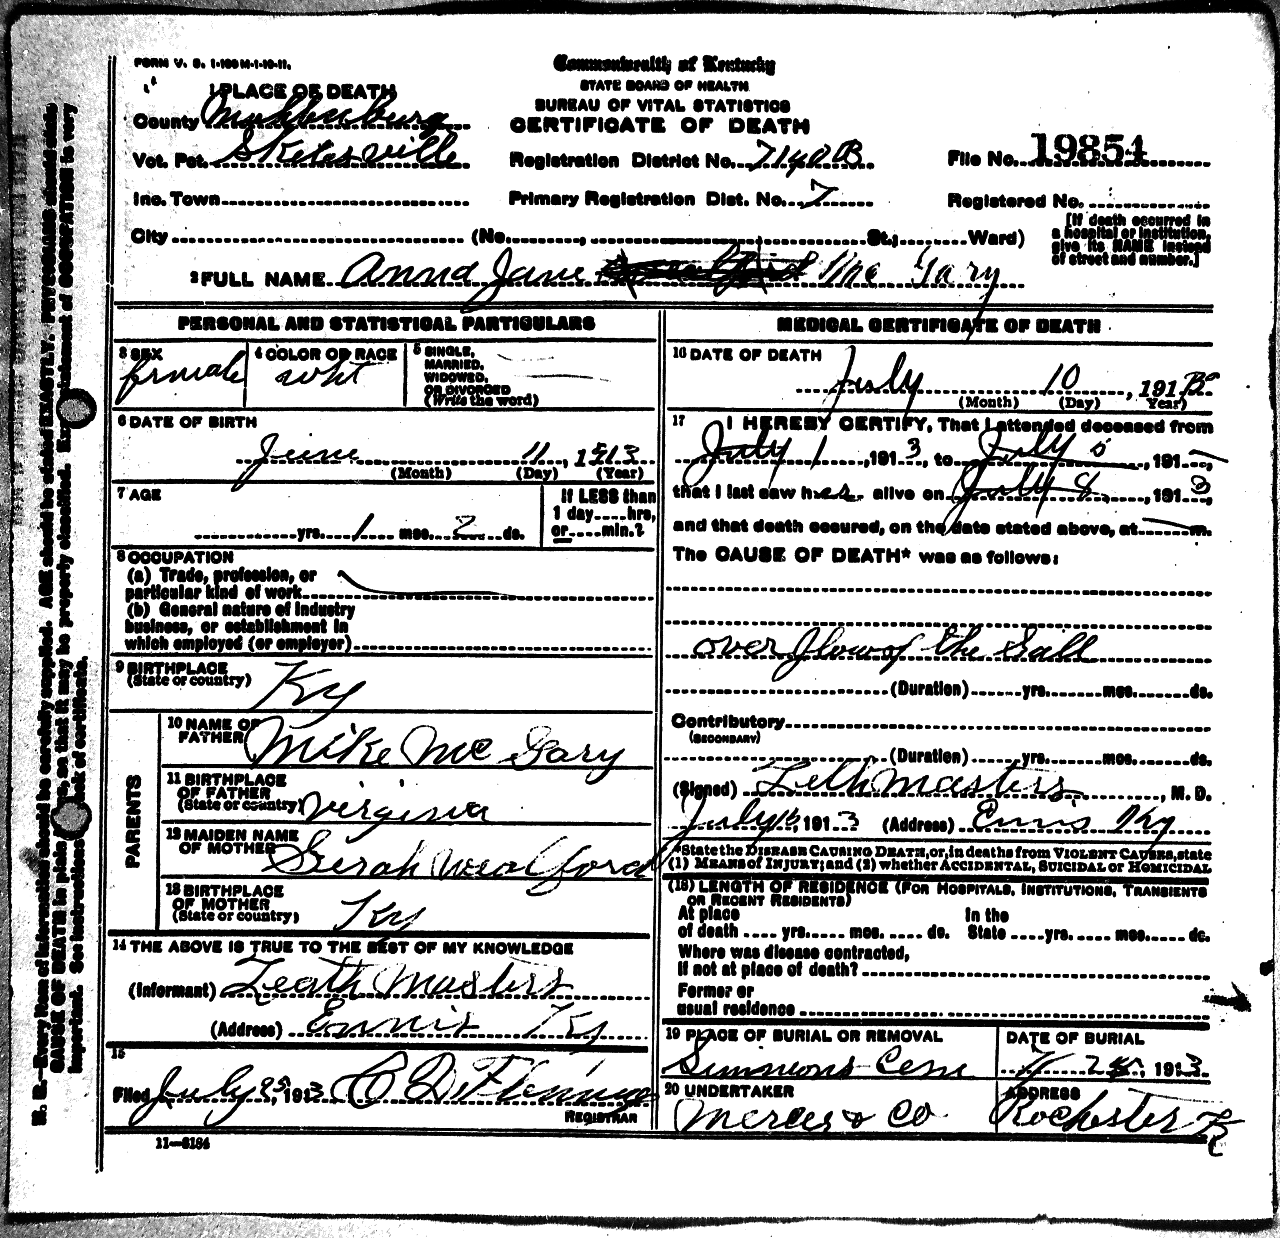 FORM V. S. 1-100M-1-10-11.
Commonwealth of Kentucky
STATE BOARD OF HEALTH
BUREAU OF VITAL STATISTICS
CERTIFICATE OF DEATH
1 PLACE OF DEATH
County Muhlenburg
Vot. Pct. Skilesville
Registration District No. 7140B
File No. 19854
Inc. Town
Primary Registration Dist. No. 7
Registered No.
City (No. , St.; Ward)
[If death occurred in
a hospital or institution,
give its NAME instead
of street and number.]
2 FULL NAME Anna Jane Mc Gary
PERSONAL AND STATISTICAL PARTICULARS
3 SEX
female
4 COLOR OR RACE
wht
5 SINGLE,
MARRIED,
WIDOWED,
OR DIVORCED
(Write the word)
6 DATE OF BIRTH
June 11, 1913
(Month) (Day) (Year)
7 AGE
yrs. 1 mos. 2 ds.
If LESS than
1 day....hrs.
or....min.?
8 OCCUPATION
(a) Trade, profession, or
particular kind of work
(b) General nature of industry
business, or establishment in
which employed (or employer)
9 BIRTHPLACE
(State or country)
Ky
PARENTS
10 NAME OF
FATHER
Mike Mc Gary
11 BIRTHPLACE
OF FATHER
(State or country)
Virginia
12 MAIDEN NAME
OF MOTHER
Surah
13 BIRTHPLACE
OF MOTHER
(State or country)
Ky
14 THE ABOVE IS TRUE TO THE BEST OF MY KNOWLEDGE
(Informant) Leath Masters
(Address) Ennis Ky
15
Filed July 25, 1913 C D Fleming
REGISTRAR
11—6184
MEDICAL CERTIFICATE OF DEATH
16 DATE OF DEATH
July 10, 191
(Month) (Day) (Year)
17 I HEREBY CERTIFY, That I attended deceased from
July 1, 1913, to July, 191
that I last saw her alive on July 8, 1913,
and that death occured, on the date stated above, at m.
The CAUSE OF DEATH* was as follows:
over flow of the Gall
(Duration) yrs. mos. ds.
Contributory
(SECONDARY)
(Duration) yrs. mos. ds.
(Signed) Leth Masters, M. D.
July, 1913 (Address) Ennis Ky
*State the DISEASE CAUSING DEATH, or, in deaths from VIOLENT CAUSES, state
(1) MEANS OF INJURY; and (2) whether ACCIDENTAL, SUICIDAL or HOMICIDAL
(18) LENGTH OF RESIDENCE (FOR HOSPITALS, INSTITUTIONS, TRANSIENTS
OR RECENT RESIDENTS)
At place
of death .... yrs. .... mos. .... ds.
In the
State .... yrs. .... mos. .... ds.
Where was disease contracted,
If not at place of death?
Former or
usual residence
19 PLACE OF BURIAL OR REMOVAL
Simmons Cem
DATE OF BURIAL
7, 1913
20 UNDERTAKER
Mercer & Co
ADDRESS
Rochester K
N. B.—Every item of information should be carefully supplied. AGE should be stated EXACTLY. PHYSICIANS should state
CAUSE OF DEATH in plain so that it may be properly classified. statement of OCCUPATION is very
important. See instructions back of certificate.